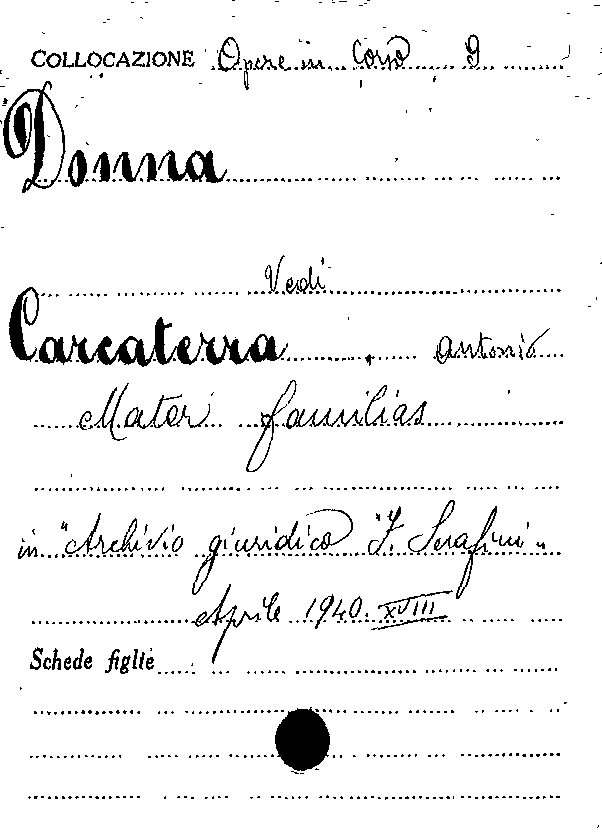 COLLOCAZIONE Opere in Corso 9
Donna
Vedi
Carcaterra, Antonio
Mater familias
in "Archivio giuridico "F. Serafini"
Aprile 1940. XVIII
Schede figlie